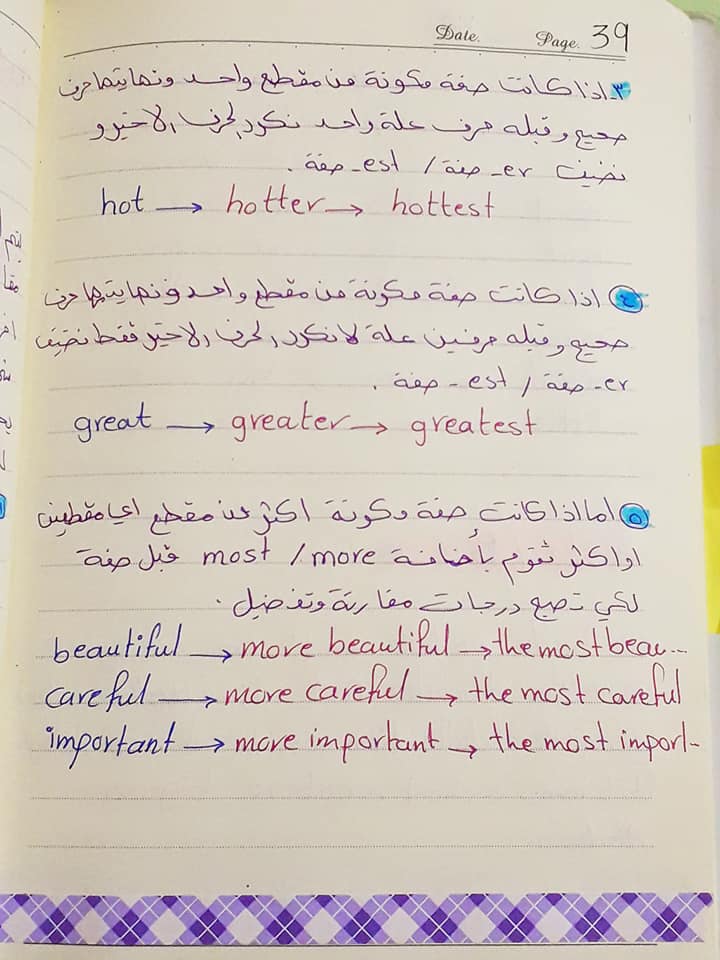 Date.
Page. 39
٣ـ اذا كانت صفة مكونة من مقطع واحد ونهايتها حرف
صحيح وقبله حرف علة واحد نكرر الحرف الاخير و
نضيف er- صفة / est- صفة .
hot → hotter → hottest
٤ اذا كانت صفة مكونة من مقطع واحد ونهايتها حرف
صحيح وقبله حرفين علة لا نكرر الحرف الاخير فقط نضيف
er- صفة / est - صفة .
great → greater → greatest
٥ اما اذا كانت صفة مكونة اكثر من مقطع اي مقطعين
او اكثر نقوم بأضافة most / more قبل صفة
لكي تصبح درجات مقارنة وتفضيل .
beautiful → more beautiful → the most beau...
careful → more careful → the most careful
important → more important → the most import-